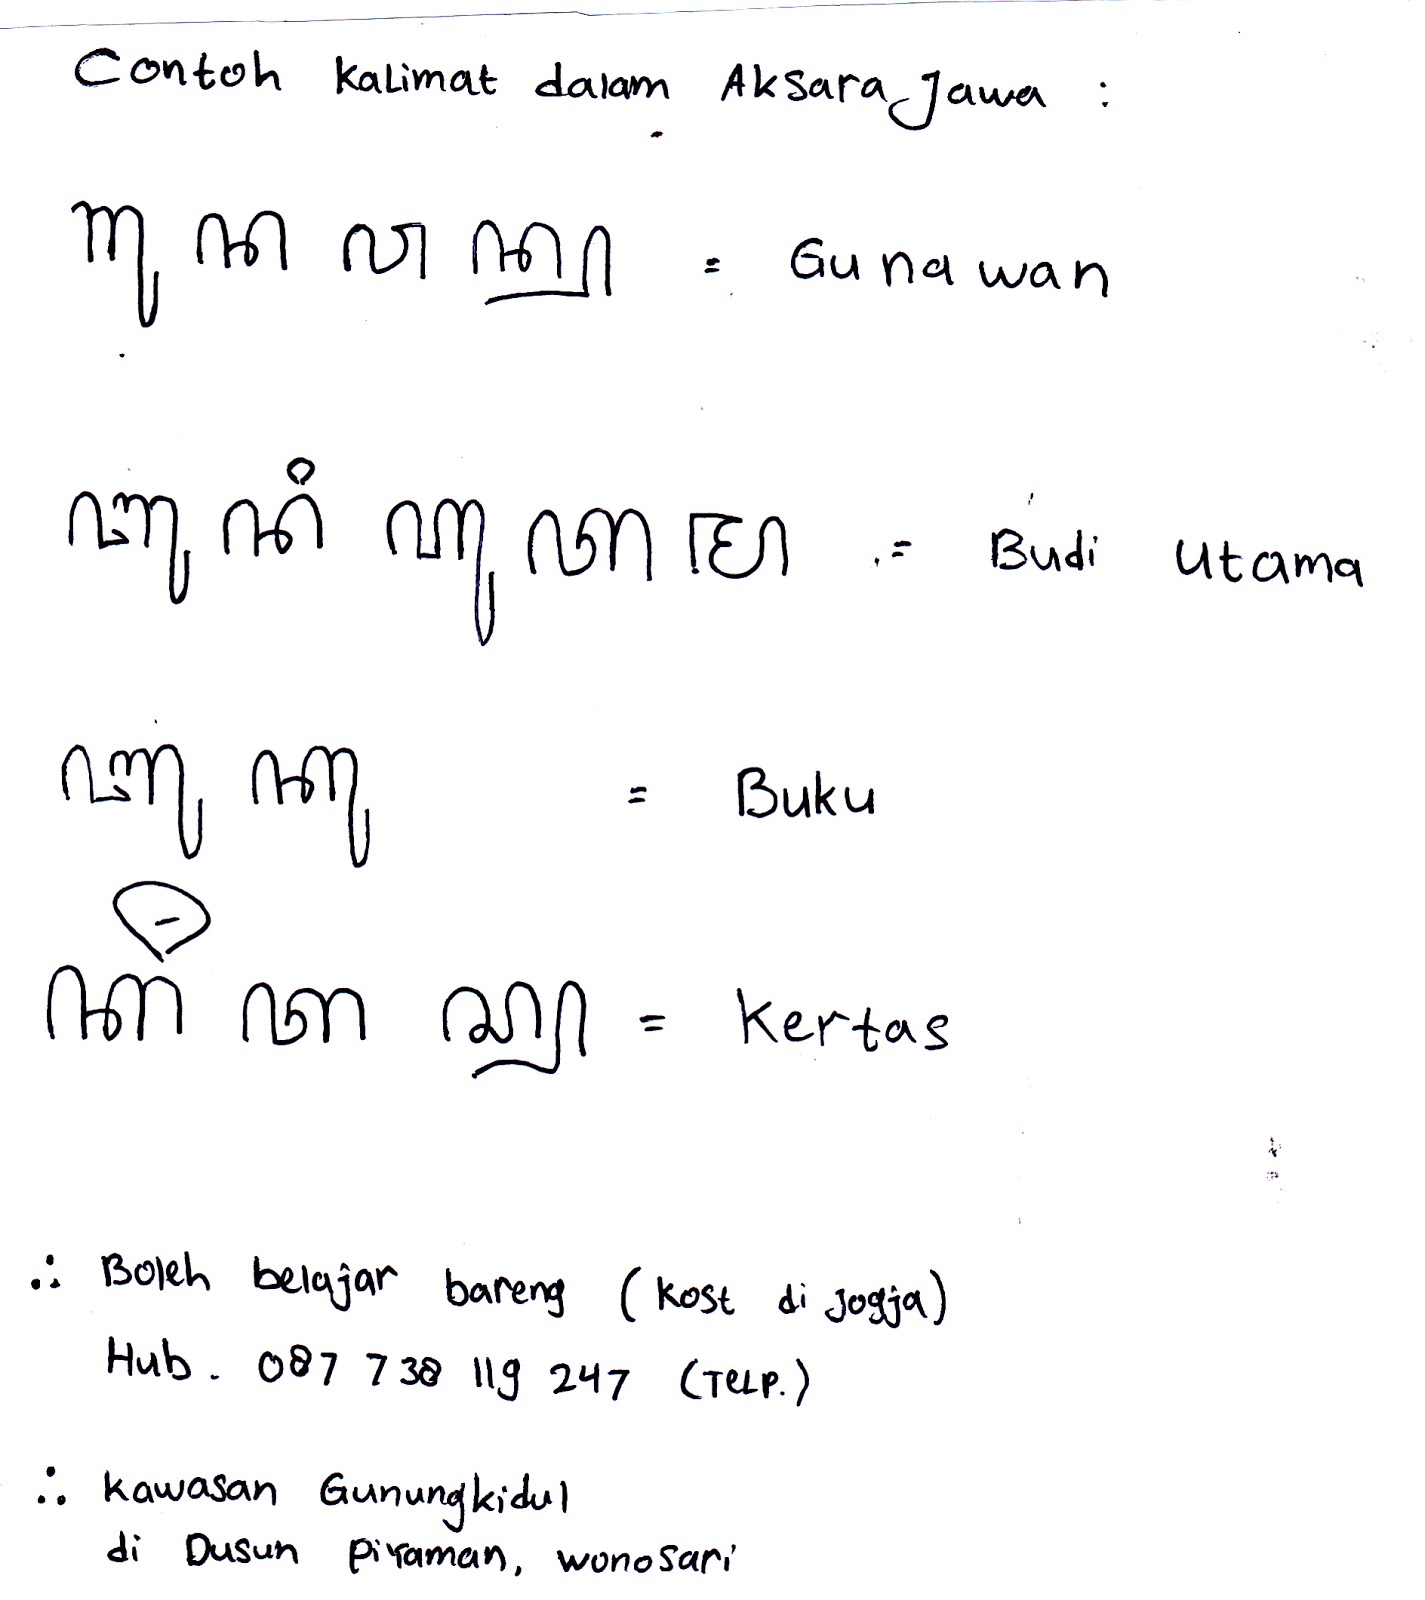 Contoh Kalimat dalam Aksara Jawa :
ꦒꦸ ꦤ ꦮ ꦤ꧀ = Gunawan
ꦧꦸ ꦢꦶ ꦲꦸ ꦠ ꦩ = Budi Utama
ꦧꦸ ꦏꦸ = Buku
ꦏꦼꦂ ꦠ ꦱ꧀ = Kertas
∴ Boleh belajar bareng (Kost di Jogja)
Hub. 087 738 119 247 (TeLP.)
∴ Kawasan Gunungkidul
di Dusun Piyaman, wonosari